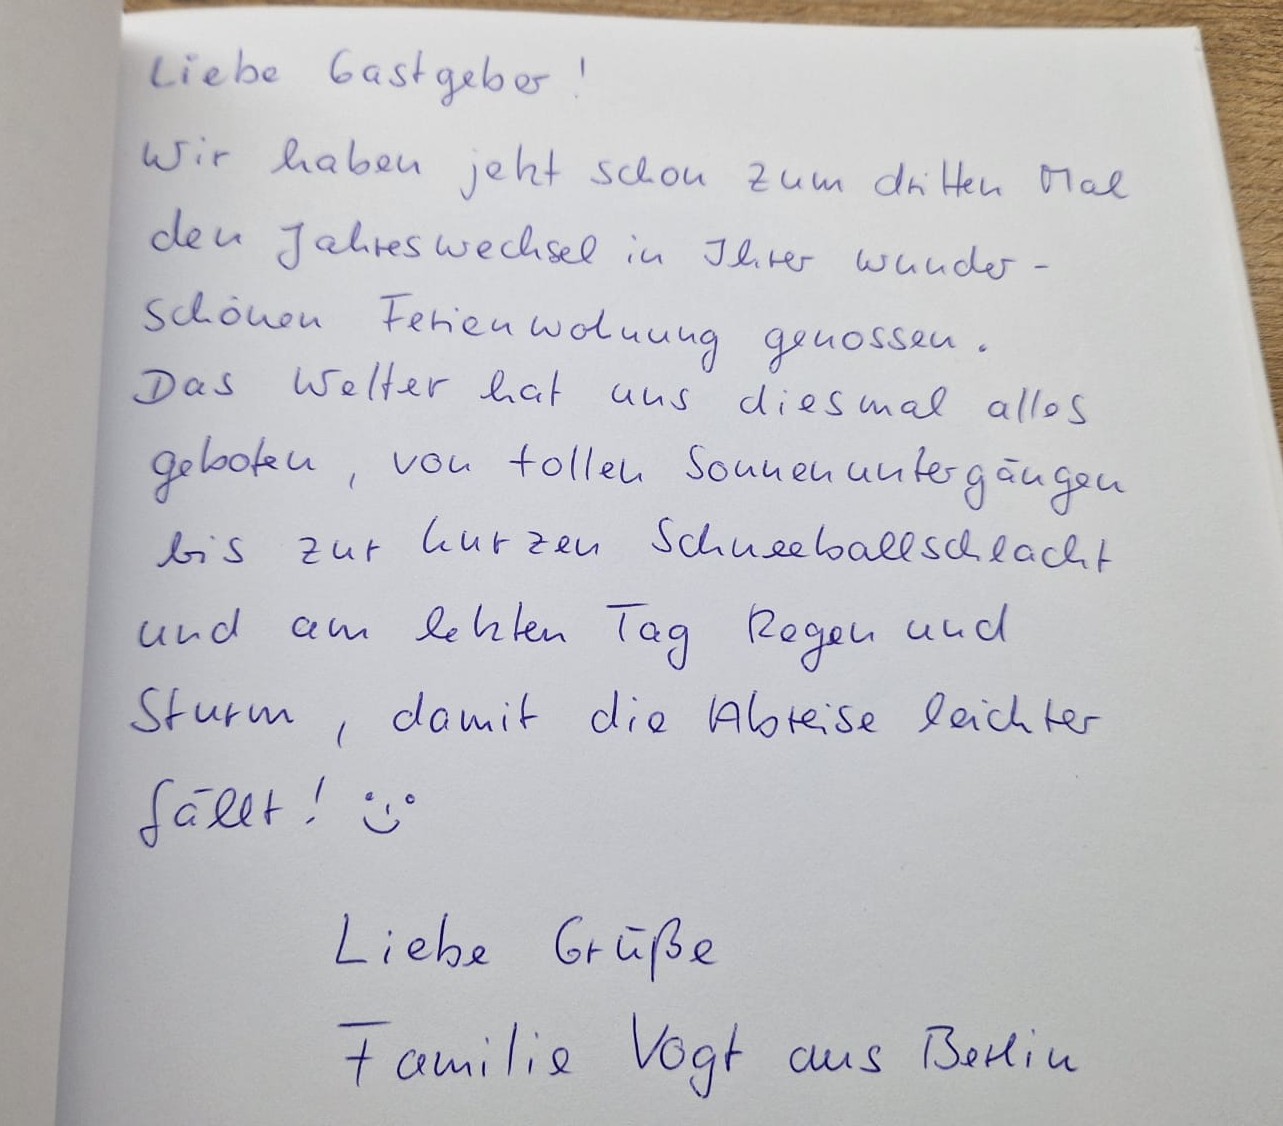 Liebe Gastgeber!
Wir haben jetzt schon zum dritten Mal
den Jahreswechsel in Ihrer wunder-
schönen Ferienwohnung genossen.
Das Wetter hat uns diesmal alles
geboten, von tollen Sonnenuntergängen
bis zur kurzen Schneeballschlacht
und am letzten Tag Regen und
Sturm, damit die Abreise leichter
fällt! :-)
Liebe Grüße
Familie Vogt aus Berlin